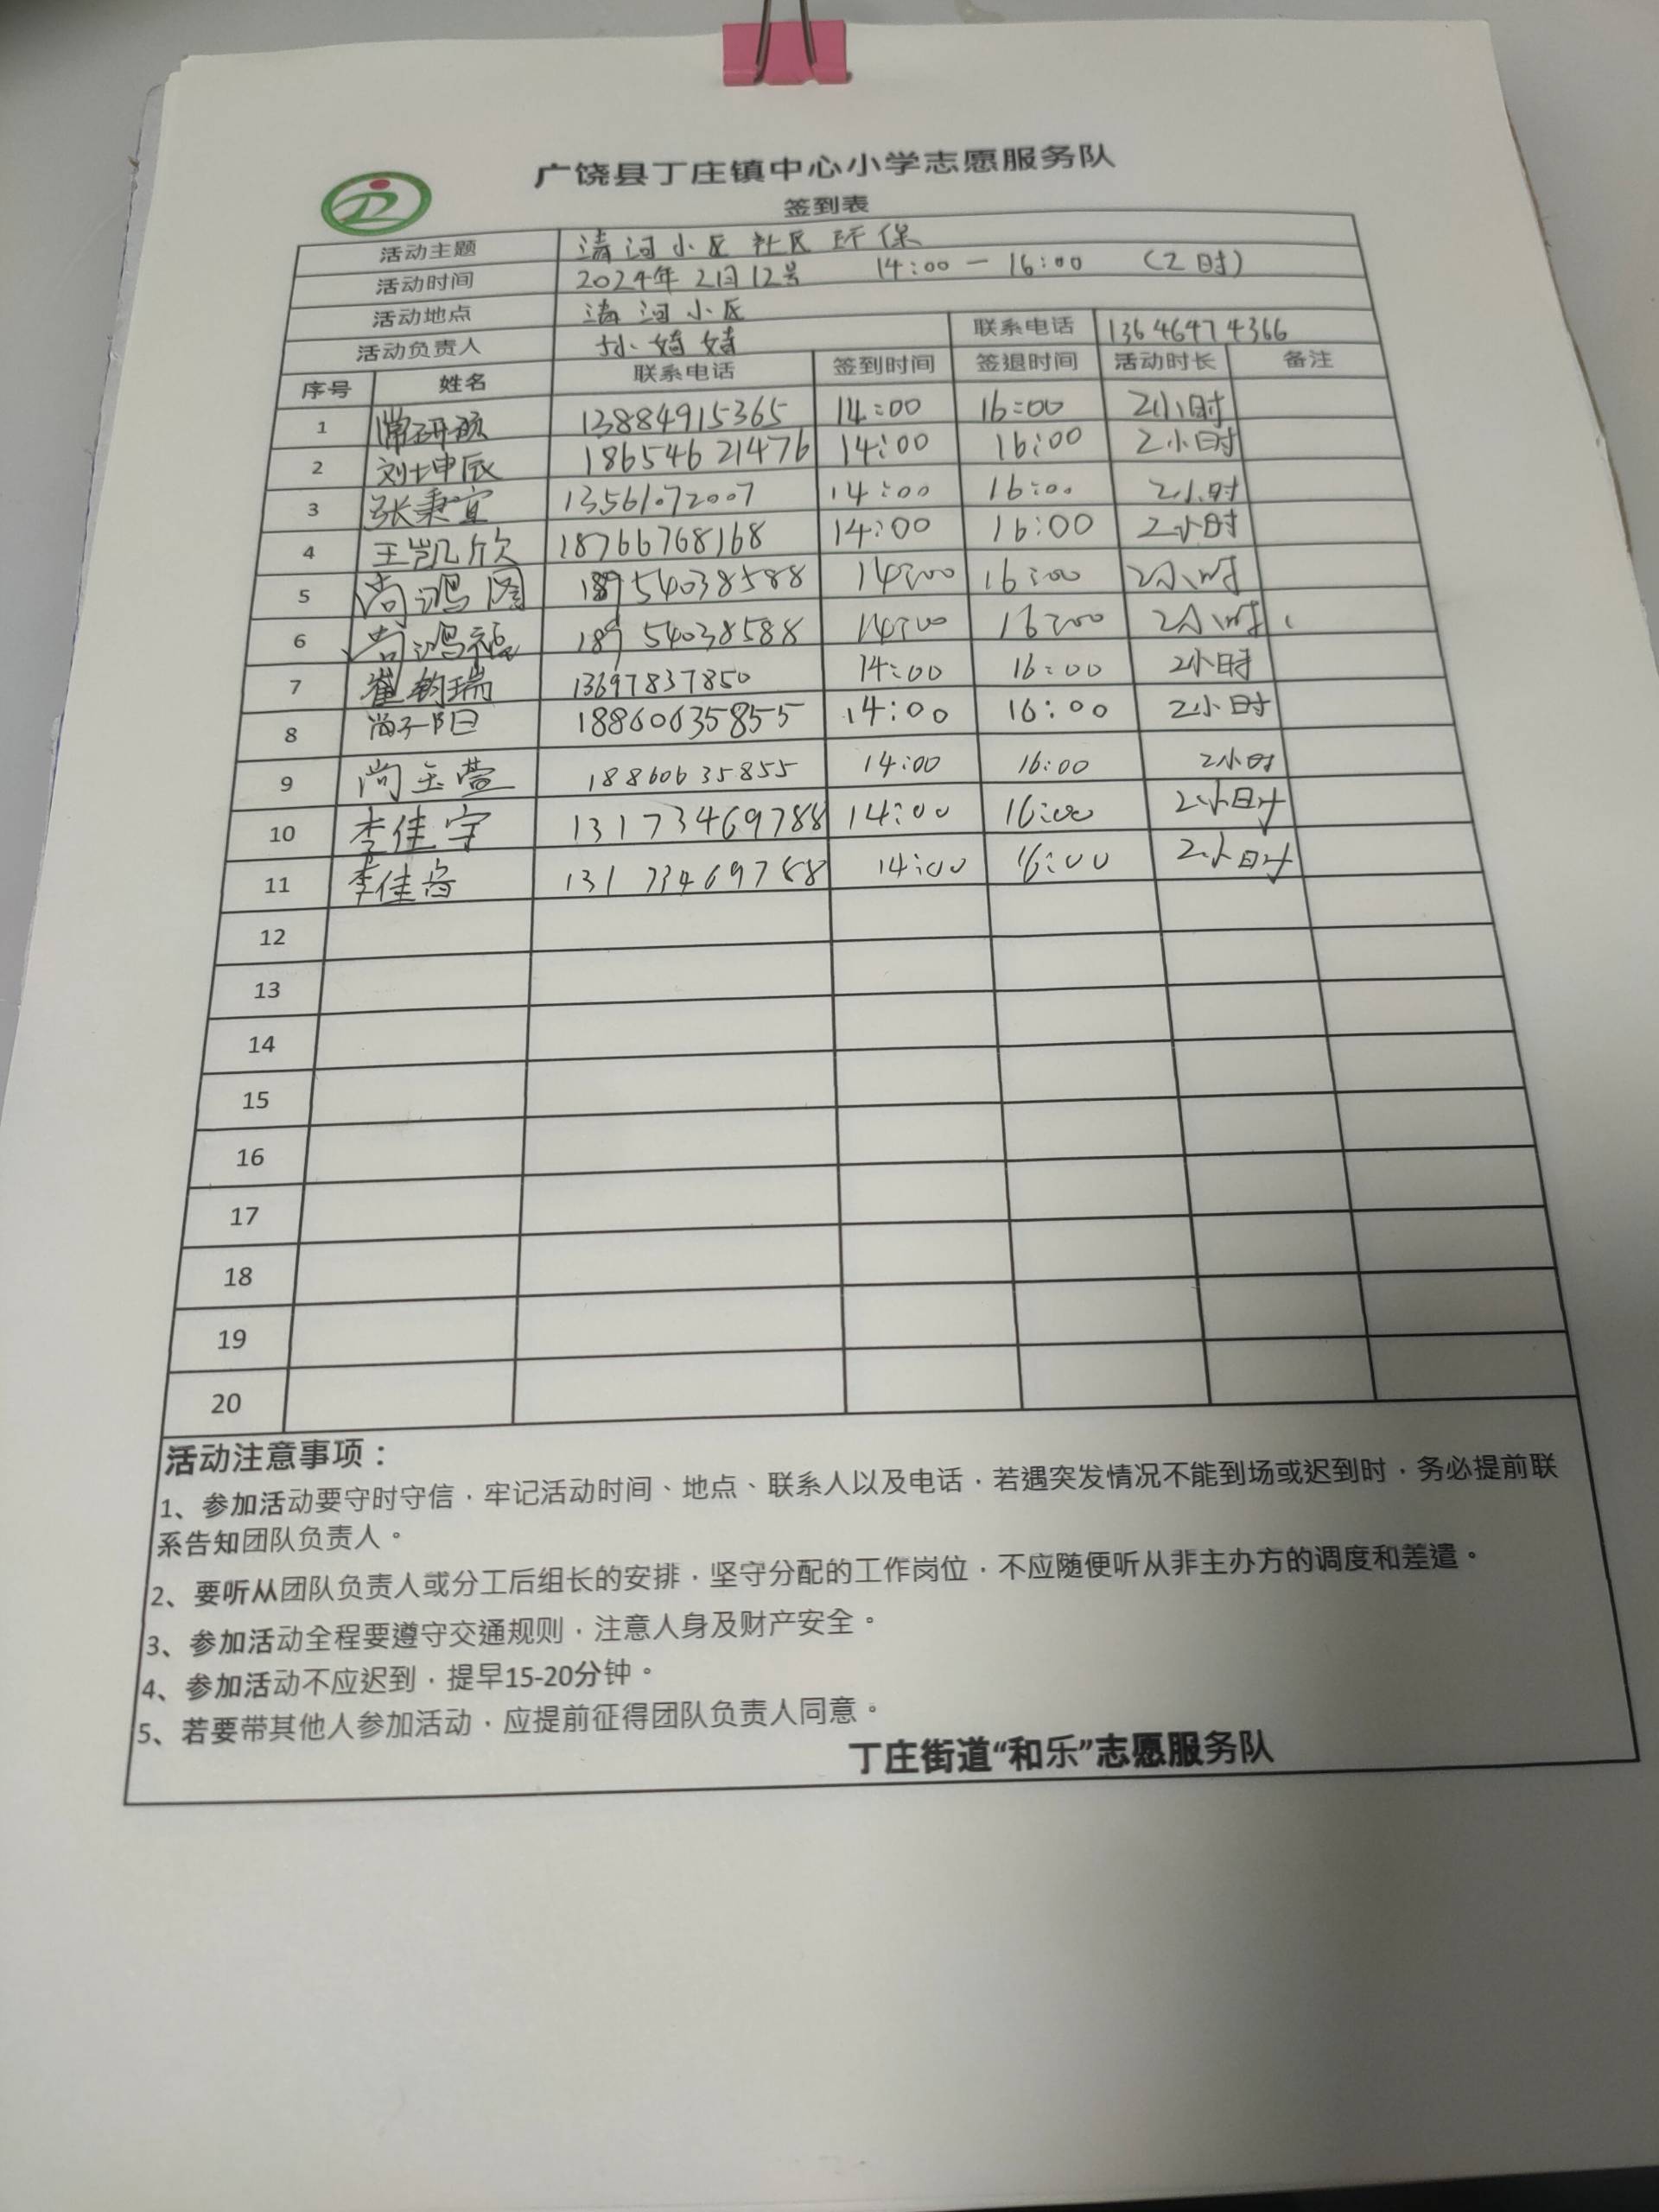 广饶县丁庄镇中心小学志愿服务队
签到表
活动主题 清河小区社区环保
活动时间 2024年2月12号 14:00－16:00 (2时)
活动地点 清河小区
活动负责人 孙婧婧 联系电话 13646474366
序号 姓名 联系电话 签到时间 签退时间 活动时长 备注
1 常研硕 13884915365 14:00 16:00 2小时
2 刘坤辰 18654621476 14:00 16:00 2小时
3 张秉宜 13561072007 14:00 16:00 2小时
4 王凯欣 18766768168 14:00 16:00 2小时
5 尚鸿图 18954038588 14:00 16:00 2小时
6 尚鸿福 18954038588 14:00 16:00 2小时
7 崔钧瑞 13697837850 14:00 16:00 2小时
8 尚子阳 18860635855 14:00 16:00 2小时
9 尚玉萱 18860635855 14:00 16:00 2小时
10 李佳宇 13173469788 14:00 16:00 2小时
11 李佳 13173469788 14:00 16:00 2小时
12
13
14
15
16
17
18
19
20
活动注意事项：
1、参加活动要守时守信，牢记活动时间、地点、联系人以及电话，若遇突发情况不能到场或迟到时，务必提前联
系告知团队负责人。
2、要听从团队负责人或分工后组长的安排，坚守分配的工作岗位，不应随便听从非主办方的调度和差遣。
3、参加活动全程要遵守交通规则，注意人身及财产安全。
4、参加活动不应迟到，提早15-20分钟。
5、若要带其他人参加活动，应提前征得团队负责人同意。
丁庄街道“和乐”志愿服务队